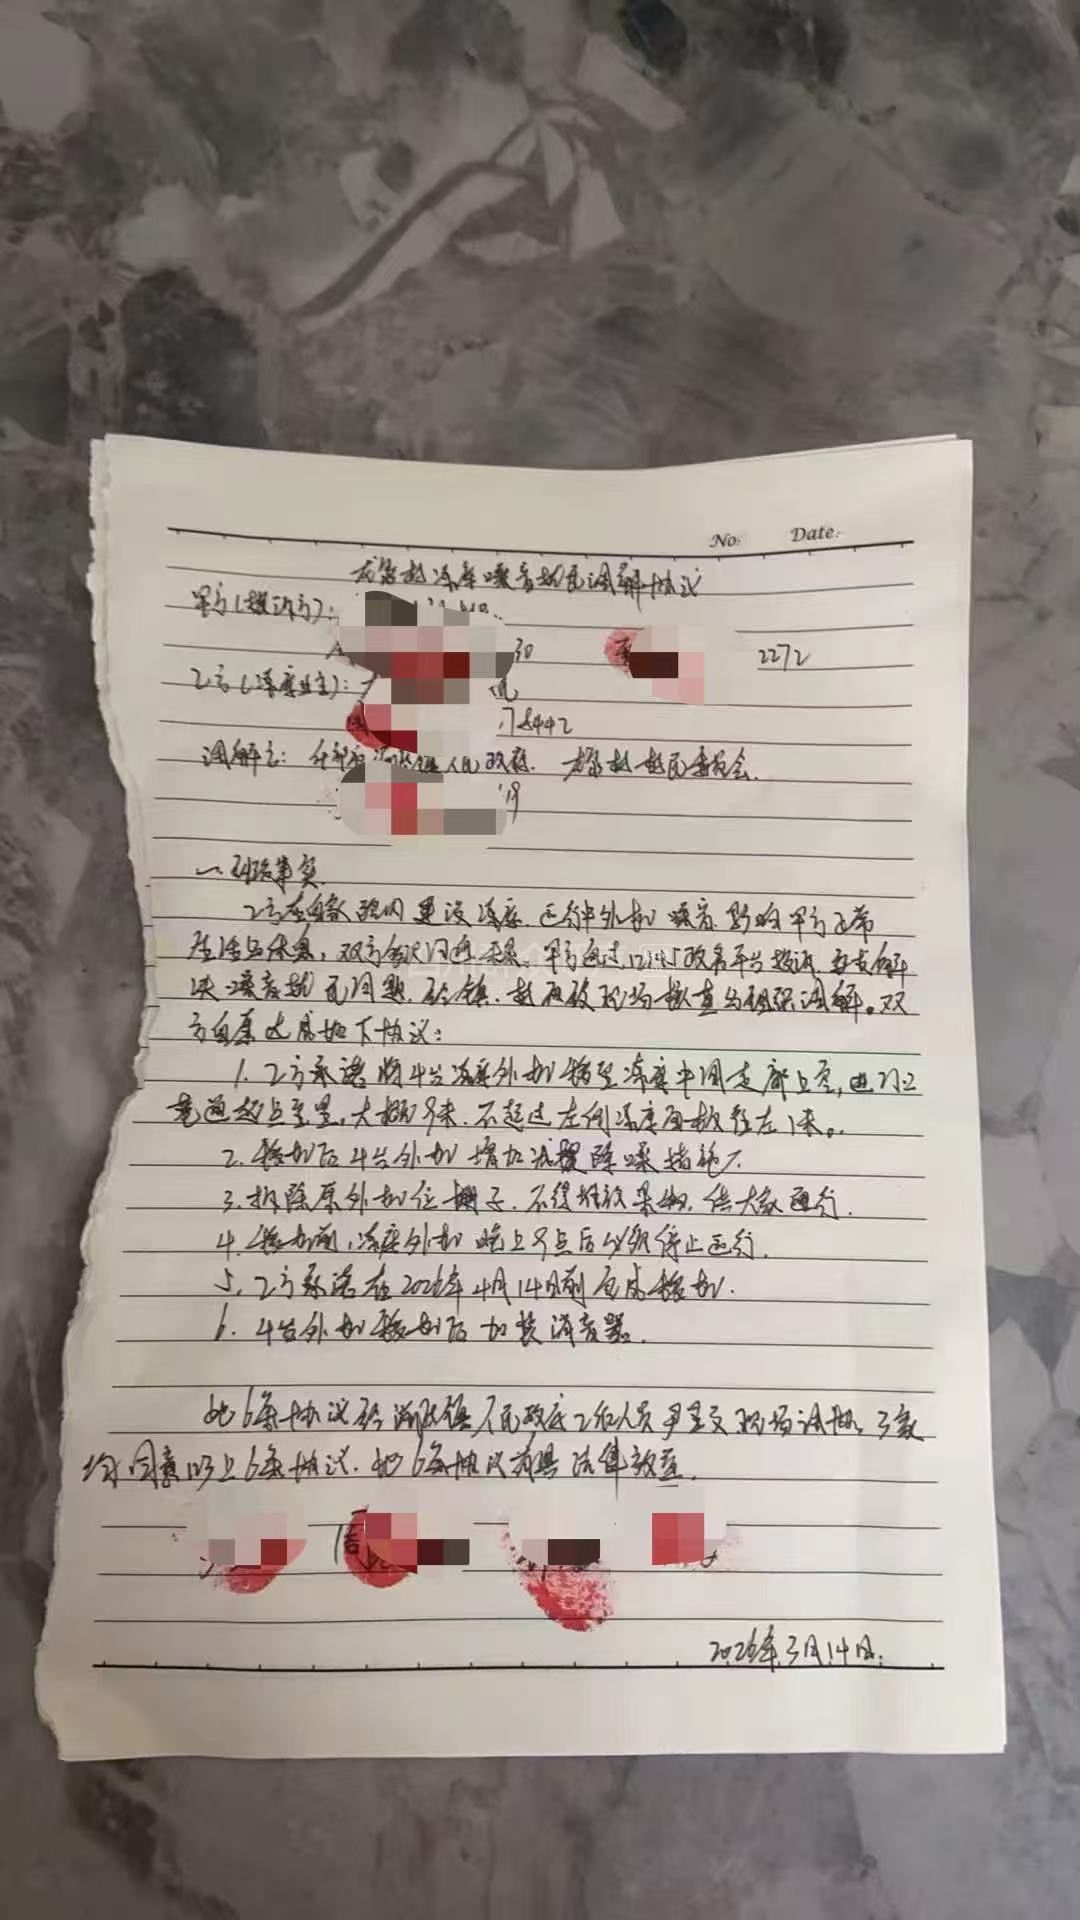 No: Date:
冻库噪音扰民调解协议
甲方(投诉方):
30 2272
乙方(冻库业主):
78442
调解方: 人民政府. 村村民委员会.
19
一.纠纷事实
乙方在自家院内建设冻库.运行中外机噪音影响甲方正常
生活与休息,双方多次沟通未果.甲方通过12345政务平台投诉.要求解
决噪音扰民问题.经镇.村两级现场核查与组织调解。双
方自愿达成如下协议:
1.乙方承诺将4台冻库外机移至冻库中间走廊上空,进门
大概9米.不超过左侧冻库面板往左1米。
2.移机后4台外机增加减震除噪措施.
3.拆除原外机位棚子.不得堆放杂物.供大家通行.
4.移机前,冻库外机晚上9点后必须停止运行.
5.乙方承诺在2026年4月14日前完成移机.
6.4台外机移机后加装消音器.
此6条协议经 镇人民政府工作人员 现场调解.3家
均同意以上6条协议.此6条协议具法律效益.
2026年3月14日.